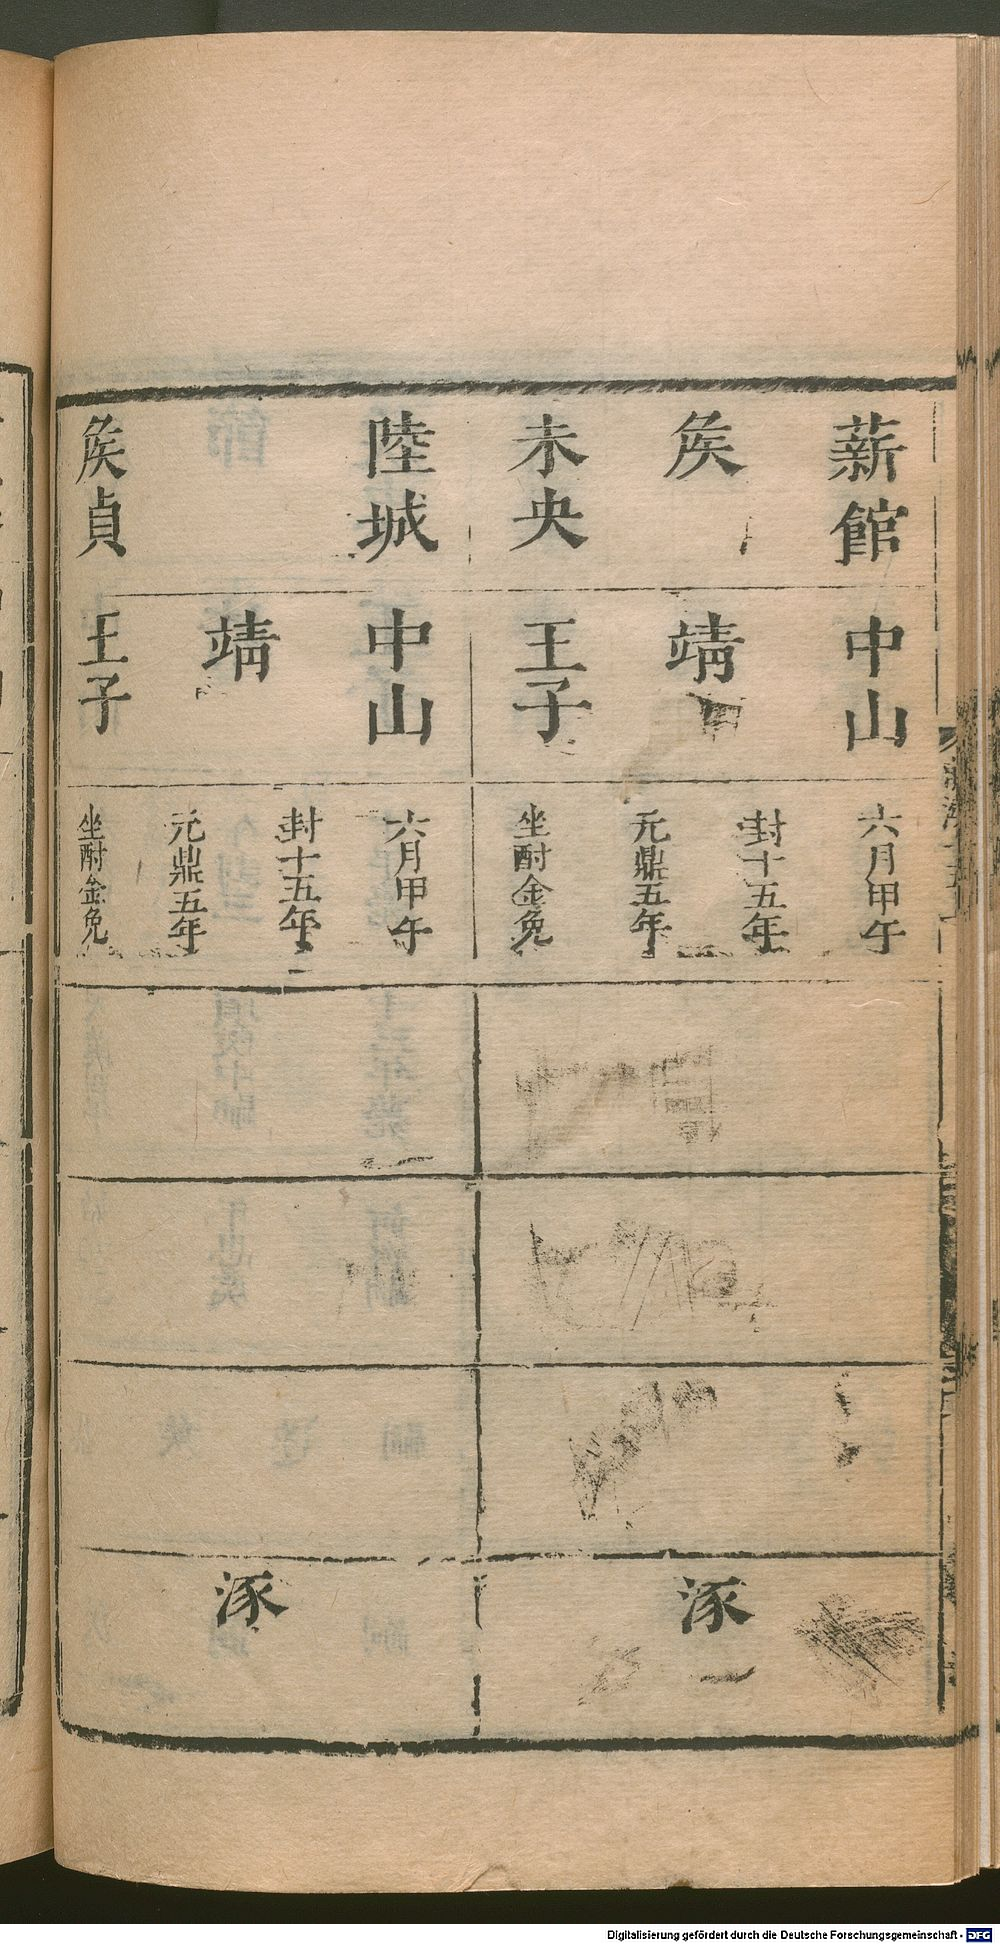 薪館
矦
未央
中山
靖
王子
六月甲午
封十五年
元鼎五年
坐酎金免
涿
陸城
矦貞
中山
靖
王子
六月甲午
封十五年
元鼎五年
坐酎金免
涿
Digitalisierung gefördert durch die Deutsche Forschungsgemeinschaft - DFG